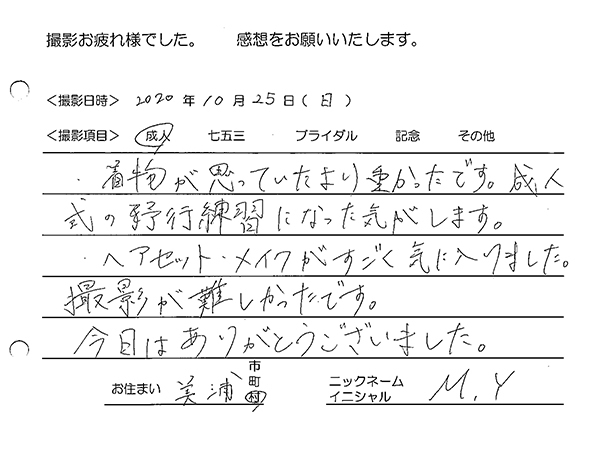 撮影お疲れ様でした。 感想をお願いいたします。
<撮影日時> 2020年10月25日(日)
<撮影項目> 成人 七五三 ブライダル 記念 その他
・着物が思っていたより重かったです。成人
式の予行練習になった気がします。
・ヘアセット・メイクがすごく気に入りました。
撮影が難しかったです。
今日はありがとうございました。
お住まい 美浦 市町村 ニックネーム イニシャル M.Y